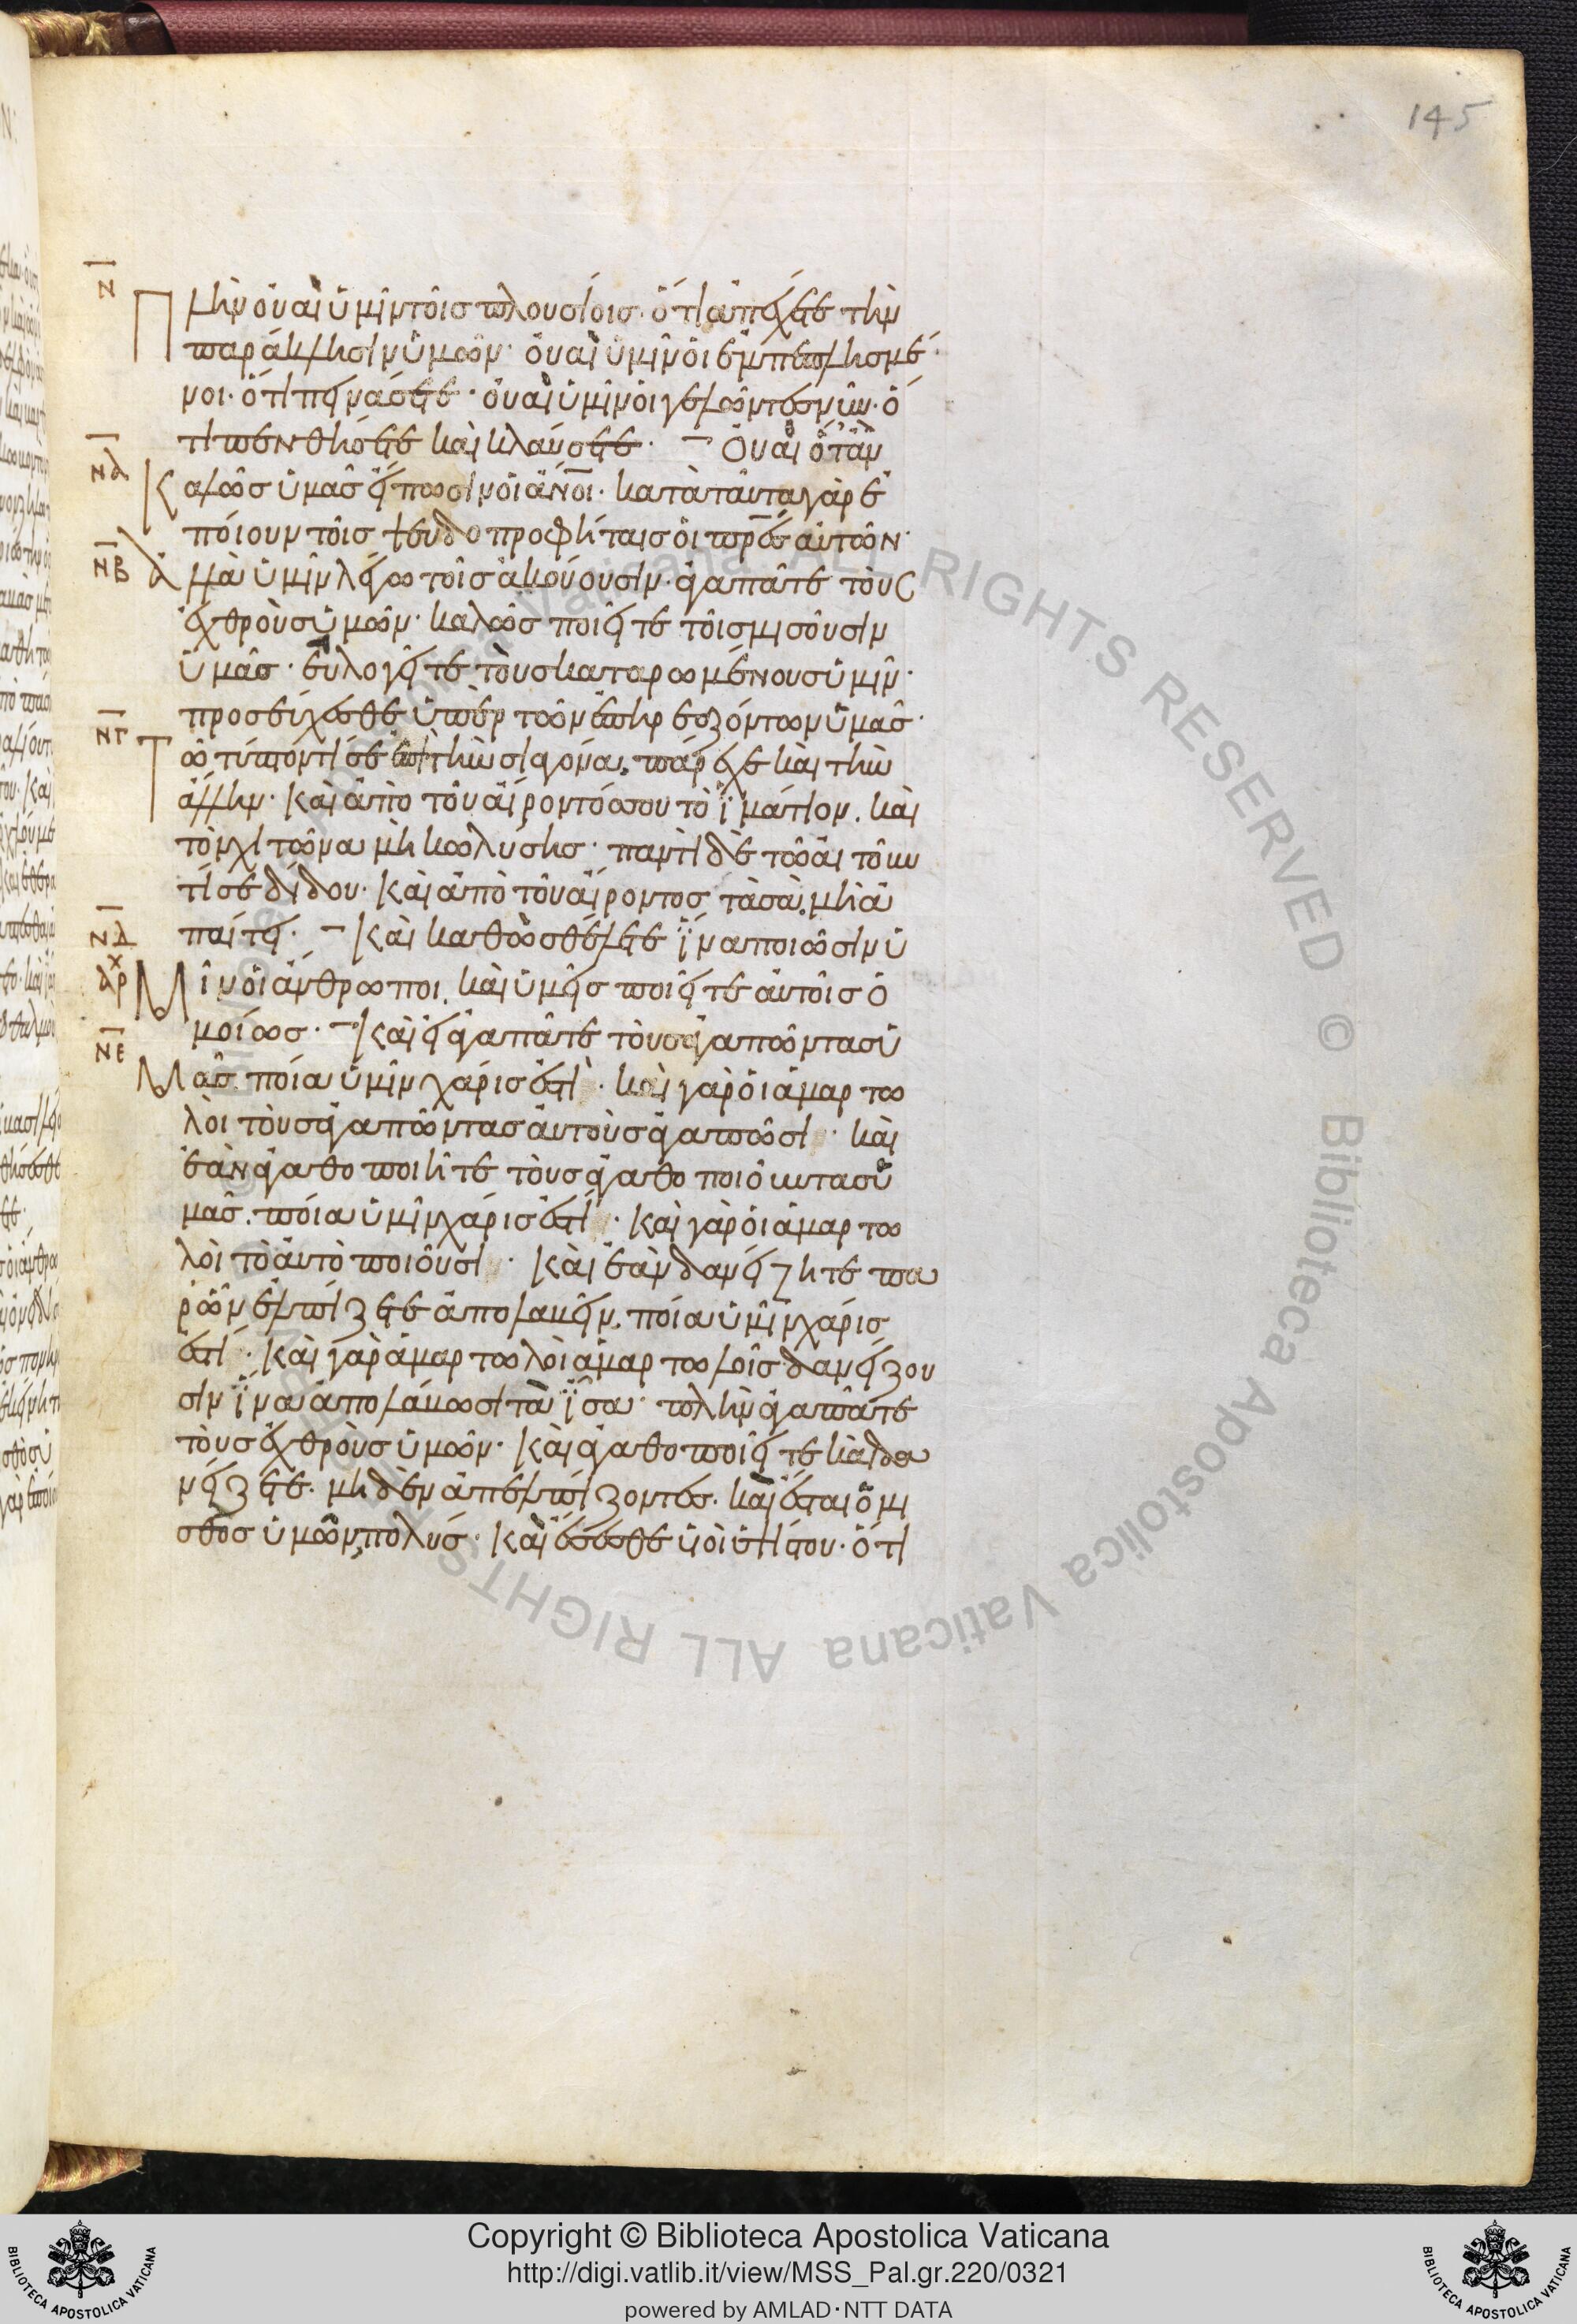 145
Ν
Πλὴν οὐαὶ ὑμῖν τοῖς πλουσίοις· ὅτι ἀπέχετε τὴν
παράκλησιν ὑμῶν· οὐαὶ ὑμῖν οἱ ἐμπεπλησμέ
νοι· ὅτι πεινάσετε· οὐαὶ ὑμῖν οἱ γελῶντες νῦν· ὅ
τι πενθήσετε καὶ κλαύσετε· Οὐαὶ ὅταν
ΝΑ
Καλῶς ὑμᾶς εἴπωσιν οἱ ἄνοι· κατὰ ταῦτα γὰρ ἐ
ποίουν τοῖς ψευδοπροφήταις οἱ πρες αὐτῶν·
ΝΒ
ἀλλὰ ὑμῖν λέγω τοῖς ἀκούουσιν· ἀγαπᾶτε τοὺς
ἐχθροὺς ὑμῶν· καλῶς ποιεῖτε τοῖς μισοῦσιν
ὑμᾶς· εὐλογεῖτε τοὺς καταρωμένους ὑμῖν·
προσεύχεσθε ὑπὲρ τῶν ἐπηρεαζόντων ὑμᾶς·
ΝΓ
Τῶ τύπτοντί σε ἐπὶ τὴν σιαγόνα, πάρεχε καὶ τὴν
ἄλλην· καὶ ἀπὸ τοῦ αἴροντός σου τὸ ἱμάτιον, καὶ
τὸν χιτῶνα μὴ κωλύσης· παντὶ δὲ τῶ αἰτοῦν
τί σε δίδου· καὶ ἀπὸ τοῦ αἴροντος τὰ σὰ, μὴ ἀ
παίτει· Καὶ καθὼς θέλετε ἵνα ποιῶσιν ὑ
ΝΔ
ἀρχ
Μῖν οἱ ἄνθρωποι, καὶ ὑμεῖς ποιεῖτε αὐτοῖς ὁ
μοίως· Καὶ εἰ ἀγαπᾶτε τοὺς ἀγαπῶντας ὑ
ΝΕ
Μᾶς, ποία ὑμῖν χάρις ἐστὶ· καὶ γὰρ οἱ ἁμαρτω
λοὶ τοὺς ἀγαπῶντας αὐτοὺς ἀγαπῶσι· καὶ
ἐὰν ἀγαθοποιῆτε τοὺς ἀγαθοποιοῦντας ὑ
μᾶς, ποία ὑμῖν χάρις ἐστί· καὶ γὰρ οἱ ἁμαρτω
λοὶ τὸ αὐτὸ ποιοῦσι· καὶ ἐὰν δανείζητε πα
ρ ὧν ἐλπίζετε ἀπολαβεῖν, ποία ὑμῖν χάρις
ἐστί· καὶ γὰρ ἁμαρτωλοὶ ἁμαρτωλοῖς δανείζου
σιν ἵνα ἀπολάβωσι τὰ ἴσα· πλὴν ἀγαπᾶτε
τοὺς ἐχθροὺς ὑμῶν· καὶ ἀγαθοποιεῖτε καὶ δα
νείζετε· μηδὲν ἀπελπίζοντες· καὶ ἔσται ὁ μι
σθὸς ὑμῶν, πολύς· καὶ ἔσεσθε υἱοὶ ὑψίστου· ὅτι
© Biblioteca Apostolica Vaticana ALL RIGHTS RESERVED © Biblioteca Apostolica Vaticana ALL RIGHTS
Copyright © Biblioteca Apostolica Vaticana
http://digi.vatlib.it/view/MSS_Pal.gr.220/0321
powered by AMLAD·NTT DATA
BIBLIOTECA APOSTOLICA VATICANA
BIBLIOTECA APOSTOLICA VATICANA